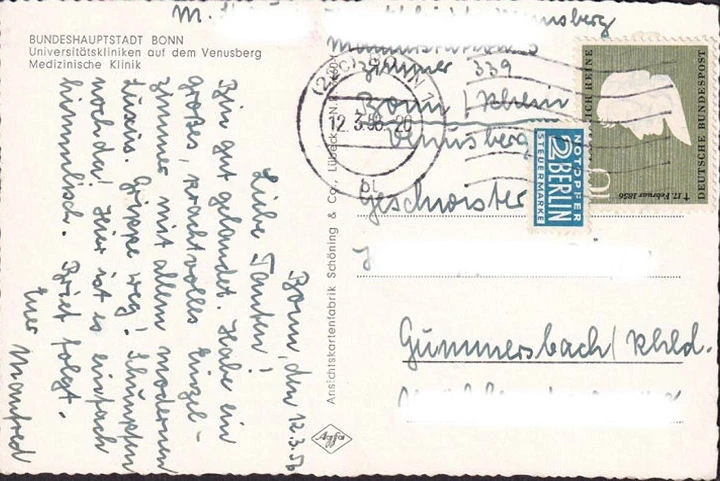 BUNDESHAUPTSTADT BONN
Universitätskliniken auf dem Venusberg
Medizinische Klinik
Bonn, den 12.3.56
Liebe Tanten!
Bin gut gelandet. Habe ein
großes, prachtvolles Einzel-
zimmer mit allem modernen
Luxus. Grippe weg! Schnupfen
noch da! Hier ist es einfach
himmlisch. Brief folgt.
Euer Manfred
Ansichtskartenfabrik Schöning & Co., Lübeck
Agfa
M.
Venusberg
Zimmer 339
Bonn / Rhein
Venusberg
(22c) BONN 1
12.3.56.-20
bt
Geschwister
J
Gummersbach / Rhld.
NOTOPFER
2 BERLIN
STEUERMARKE
HEINRICH HEINE
DEUTSCHE BUNDESPOST
† 17. Februar 1856
10